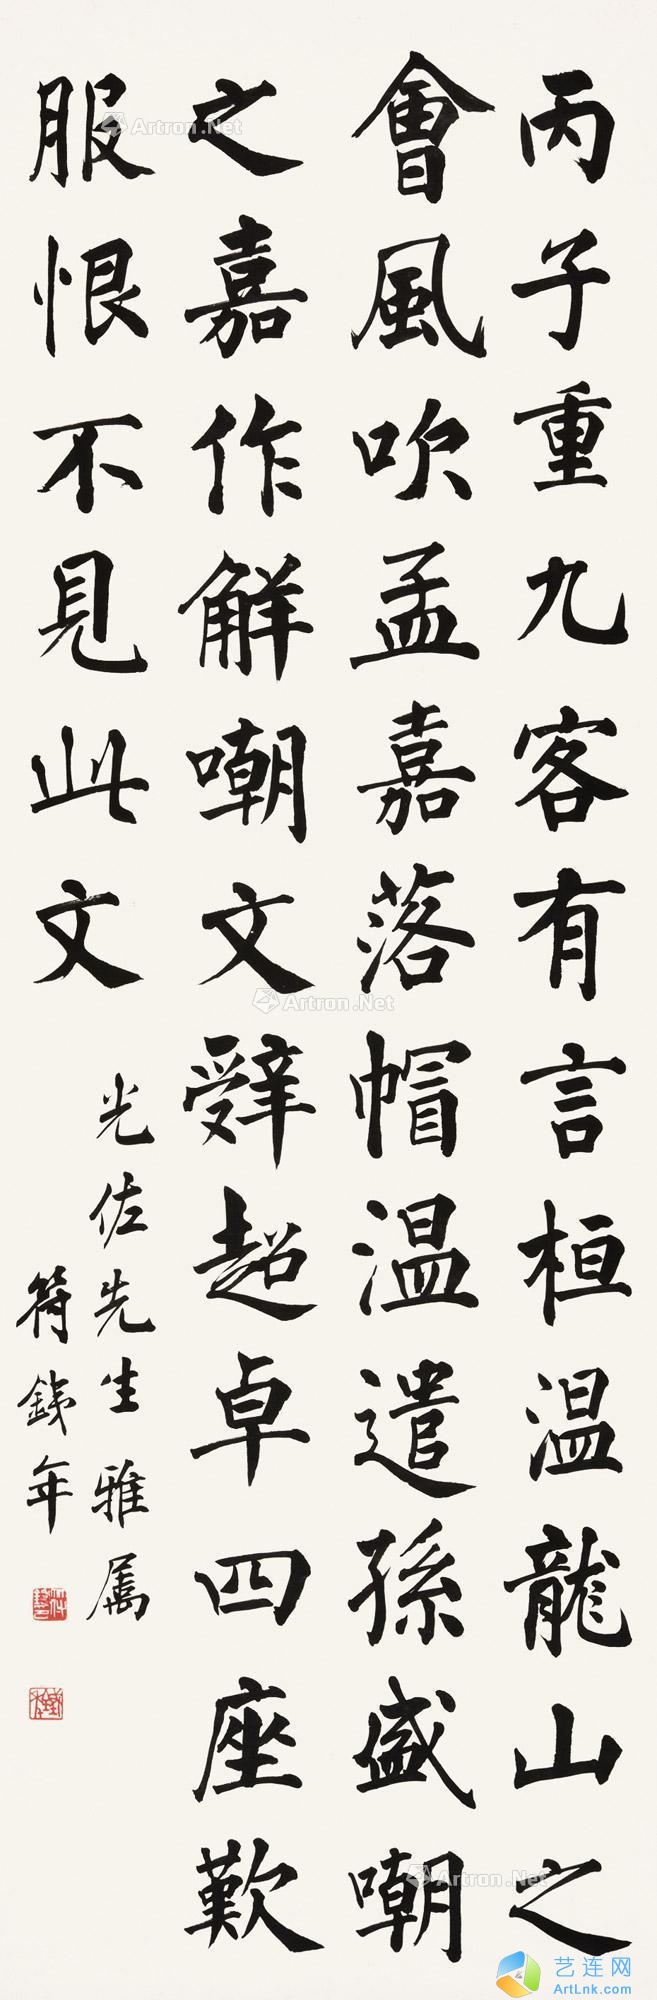 丙子重九客有言桓温龍山之
會風吹孟嘉落帽温遣孫盛嘲
之嘉作解嘲文辤超卓四座歎
服恨不見此文
光佐先生雅属
符鐵年
Artron.Net
Artron.Net
Artron.Net
Artron.Net
Artron.Net
艺连网
ArtLnk.com